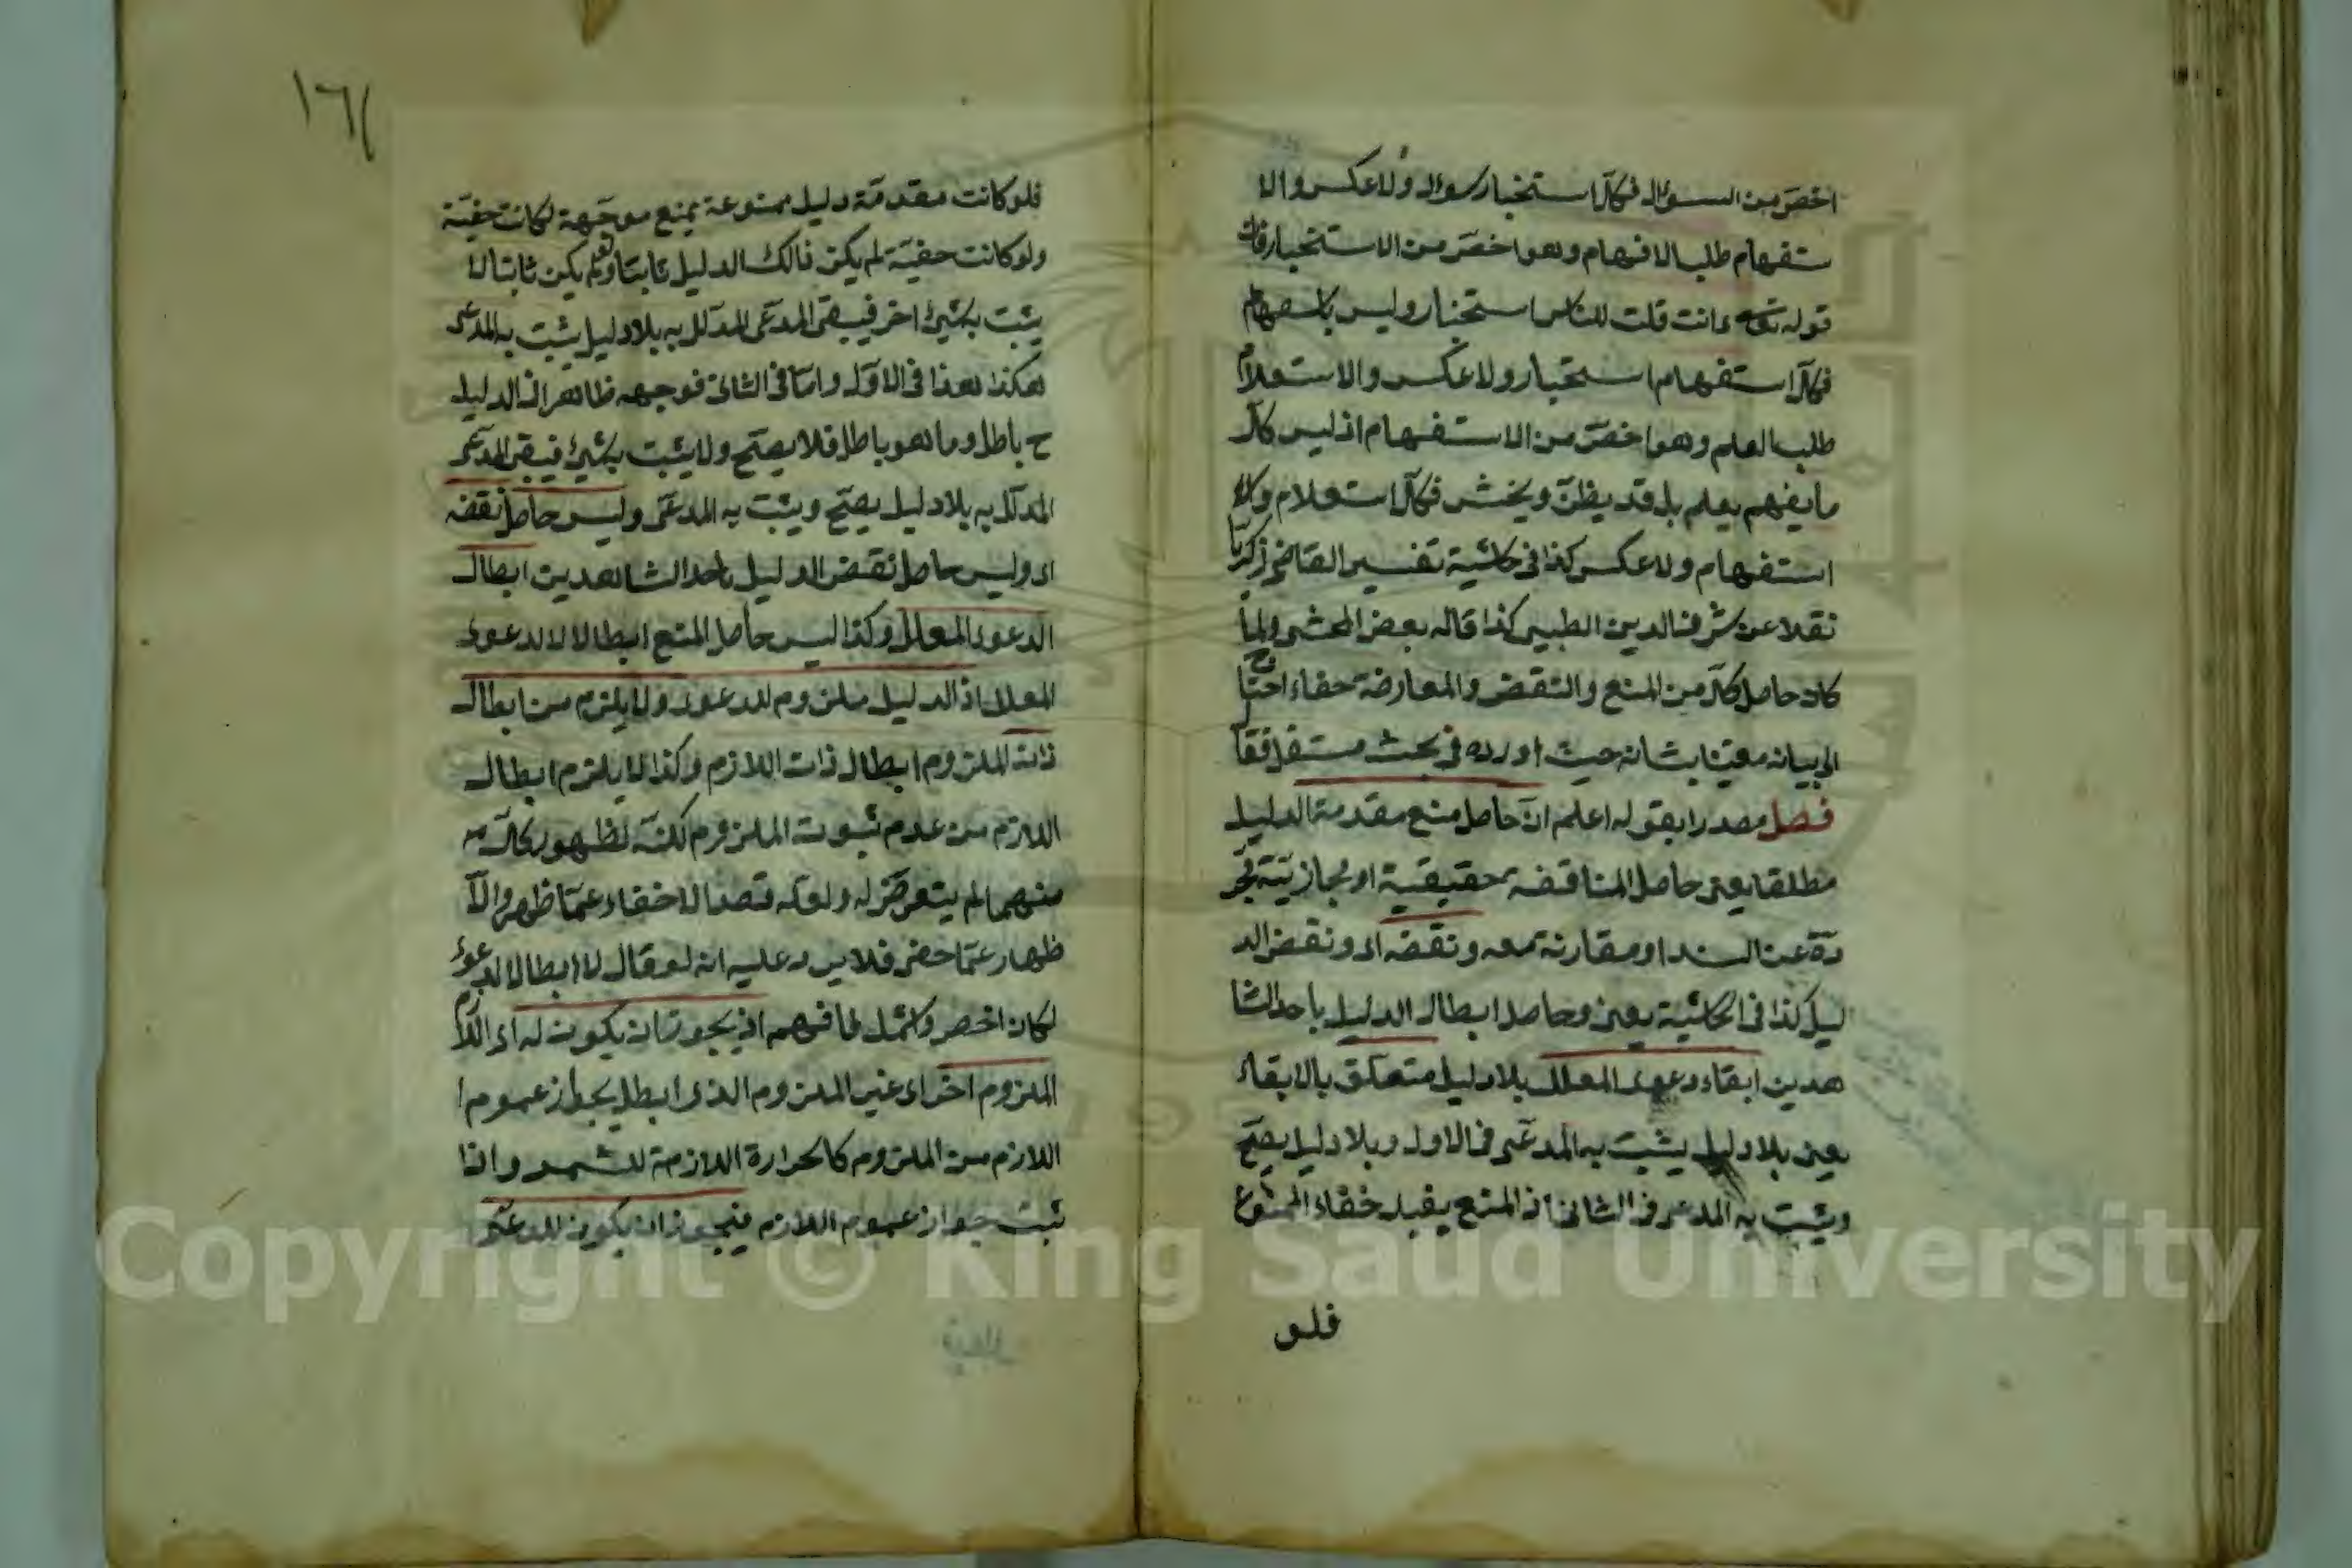 اخصّ من السؤال فكلّ استخبار سؤال ولا عكس والا
ستفهام طلب الافهام وهو اخصّ من الاستخبار فان
قوله تعالى ءانت قلت للناس استخبار وليس باستفهام
فكلّ استفهام استخبار ولا عكس والاستعلام
طلب العلم وهو اخصّ من الاستفهام اذ ليس كلّ
ما يفهم يعلم بل قد يظنّ ويخمن فكلّ استعلام
استفهام ولا عكس كذا في حاشية تفسير القاضي زكريّا
نقلا عن شرف الدين الطيبي كذا قاله بعض المحشي ولما
كان حاصل كلّ من المنع والنقض والمعارضة خفاء احتاج
الى بيانه معتنيا بشانه حيث اورده في بحث مستقل فقال
فصل مصدرا بقوله اعلم انّ حاصل منع مقدمة الدليل
مطلقا يعني حاصل المناقضة حقيقية او مجازيّة مجر
دة عن السند او مقارنة معه ونقضه اى ونقض الد
ليل كذا في الحاشية يعني وحاصل ابطال الدليل باحد الشا
هدين ابقاء دعوى المعلل بلا دليل متعلّق بالابقاء
يعني بلا دليل يثبت به المدعى في الاول وبلا دليل يصحّ
ويثبت به المدعى في الثاني اذ المنع يفيد خفاء الممنوع
فلو
١٦٢
فلو كانت مقدمة دليل ممنوعة بمنع موجّهة لكانت خفيّة
ولو كانت خفيّة لم يكن ذالك الدليل ثابتا ولو لم يكن ثابتا لا
يثبت بشيئ اخر فيبقى المدعى المدلل به بلا دليل يثبت به المدعى
هكذا هذا في الاوّل وامّا في الثاني فوجهه ظاهر اذ الدليل
ح باطل وما هو باطل فلا يصحّ ولا يثبت بشيئ فيبقى المدعى
المدلل به بلا دليل يصحّ ويثبت به المدعى وليس حاصل نقضه
اى وليس حاصل نقض الدليل باحد الشاهدين ابطال
الدعوى المعلل وكذا ليس حاصل المنع ابطالا لا لدعوى
المعلل اذ الدليل ملزوم للدعوى ولا يلزم من ابطال
ذات الملزوم ابطال ذات اللازم وكذا لا يلزم ابطال
اللازم من عدم ثبوت الملزوم لكنّه لظهور كلّ
منهما لم يتعرّض له ولعلّه قصد الاخفاء عمّا ظهر والا
ظهار عمّا خفي فلا يرد عليه انه لو قال لا ابطال الدعوى
لكان اخصر واشمل لما فهم اذ يجوز ان يكون له اى اللازم
الملزوم اخر اى غير الملزوم الذى ابطل بجواز عموم
اللازم من الملزوم كالحرارة اللازمة للشمس واذا
ثبت جواز عموم اللازم فيجوز ان يكون للمدعى
Copyright © King Saud University